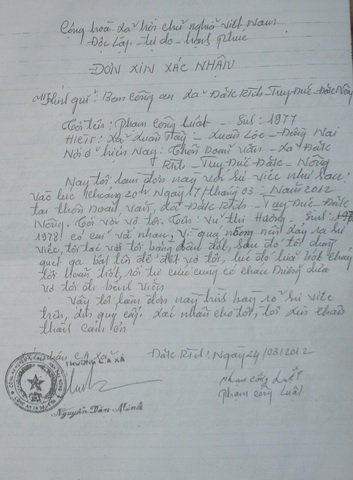 Cộng hoà xã hội chủ nghĩa việt nam
Độc lập - tự do - hạnh phúc
ĐƠN XIN XÁC NHÂN
Kính gửi: Ban công an xã Đăk RTih - Tuy Đức - Đăk Nông
Tôi tên: Phạm Công Luật - Sn: 1977
HKTT: Xã Xuân - Xuân Lộc - Đồng Nai
Nơi ở hiện Nay: Thôn Doãn văn - xã Đăk
RTih - Tuy Đức - Đăk - Nông
Nay tôi làm đơn này với sự việc như Sau:
vào lúc khoảng 20h Ngày 17 tháng 03 - Năm 2012
tại thôn Doãn văn, xã Đăk RTih - Tuy Đức - Đăk
Nông. Tôi với vợ tôi. Tên: Vũ thị Hương - Sn:
1978 có cãi vã nhau, vì quá nóng nên xảy ra sự
việc, tôi lấy vợ tôi bằng dầu đốt, sau đó tôi dùng
quẹt ga bật lên để đốt vợ tôi, lúc đó lửa bốc cháy
tôi hoản, rồi tự cứu cùng có cháu Dương đưa
vợ tôi đi bệnh viện
Vậy tôi làm đơn này trình bày rõ sự việc
trên, đến quý cấp xác nhân cho tôi, tôi xin chân
thành cảm ơn
Đăk RTih, Ngày 24/03/2012
TRƯỞNG C.A XÃ
Phạm Công Luật
Phạm Công Luật